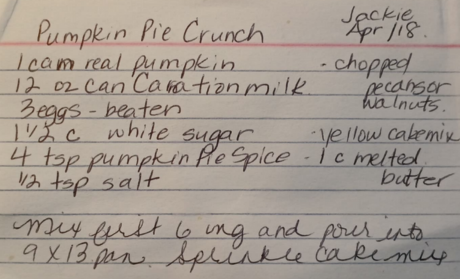 Jackie
Pumpkin Pie Crunch Apr/18.
1 can real pumpkin - chopped
12 oz can Carnation milk pecans or
3 eggs - beaten walnuts.
1 1/2 c white sugar - yellow cake mix
4 tsp pumpkin Pie Spice - 1 c melted
1/2 tsp salt butter
Mix first 6 ing and pour into
9 x 13 pan. Sprinkle Cake mix